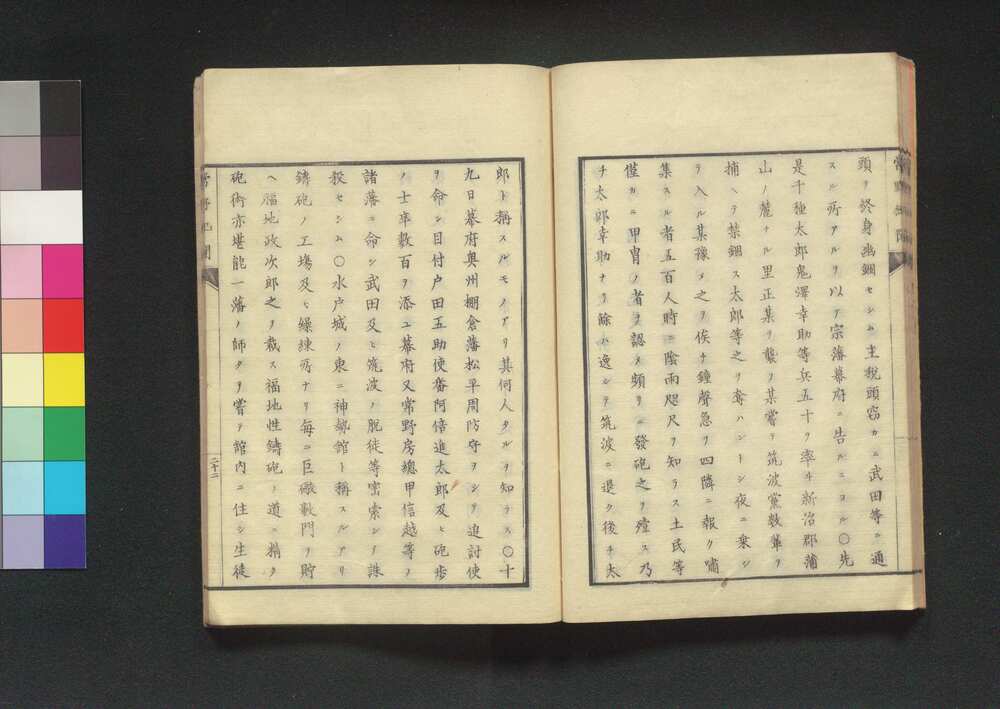 頭ヲ終身幽錮セシム主税頭窃カニ武田等ニ通
スル所アルヲ以テ宗藩幕府ニ告ルニヨル〇先
是千種太郎鬼澤幸助等兵五十ヲ率ヰ新治郡蒲
山ノ麓ナル里正某ヲ襲フ某嘗テ筑波黨数輩ヲ
捕ヘテ禁錮ス太郎等之ヲ奪ハントシ夜ニ乗シ
テ入ル某豫メ之ヲ俟チ鐘聲急ヲ四隣ニ報ク嘯
集スル者五百人時ニ陰雨咫尺ヲ知ラス土民等
僅カニ甲冑ノ者ヲ認メ頻リニ發砲之ヲ殪ス乃
チ太郎幸助ナリ餘ハ逸シテ筑波ニ退ク後チ太
郎ト稱スルモノアリ其何人タルヲ知ラス〇十
九日幕府奥州棚倉藩松平周防守ヲシテ追討使
ヲ命シ目付戸田五助使番阿倍進太郎及ヒ砲歩
ノ士卒数百ヲ添ユ幕府又常野房總甲信越等ノ
諸藩ニ命シ武田及ヒ筑波ノ脱徒等密索シテ誅
殺セシム〇水戸城ノ東ニ神勢館ト稱スルアリ
鋳砲ノ工場及ヒ繰練所ナリ毎ニ巨礮数門ヲ貯
ヘ福地政次郎之ヲ裁ス福地性鋳砲ノ道ニ精ク
砲術亦堪能一藩ノ師タリ嘗テ館内ニ住シ生徒
二十二